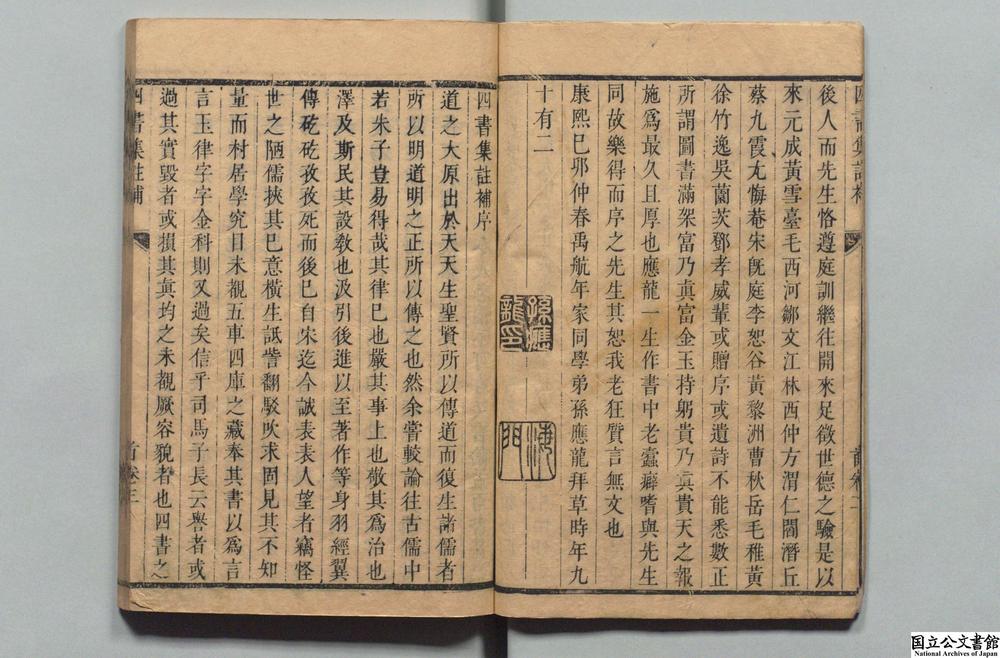 後人而先生恪遵庭訓繼往開來足徵世德之驗是以
來元成黃雪臺毛西河鄒文江林西仲方渭仁閻潛丘
蔡九霞尢悔菴宋旣庭李恕谷黃黎洲曹秋岳毛稚黃
徐竹逸吳蘭茨鄧孝威輩或贈序或遺詩不能悉數正
所謂圖書滿架富乃眞富金玉持躬貴乃眞貴天之報
施爲最久且厚也應龍一生作書中老蠹癖嗜與先生
同故樂得而序之先生其恕我老狂質言無文也
康熙巳夘仲春禹航年家同學弟孫應龍拜草時年九
十有二
孫應龍印
海門
四書集註補序
道之大原出於天天生聖賢所以傳道而復生諸儒者
所以明道明之正所以傳之也然余嘗較論往古儒中
若朱子豈易得哉其律巳也嚴其事上也敬其爲治也
澤及斯民其設敎也汲引後進以至著作等身羽經翼
傳矻矻孜孜死而後巳自宋迄今誠表表人望者竊怪
世之陋儒挾其巳意橫生詆訾翻駁吹求固見其不知
量而村居學究目未覩五車四庫之藏奉其書以爲言
言玉律字字金科則又過矣信乎司馬子長云譽者或
過其實毀者或損其眞均之未觀厥容貌者也四書之
四書集註補
首卷三
国立公文書館
National Archives of Japan